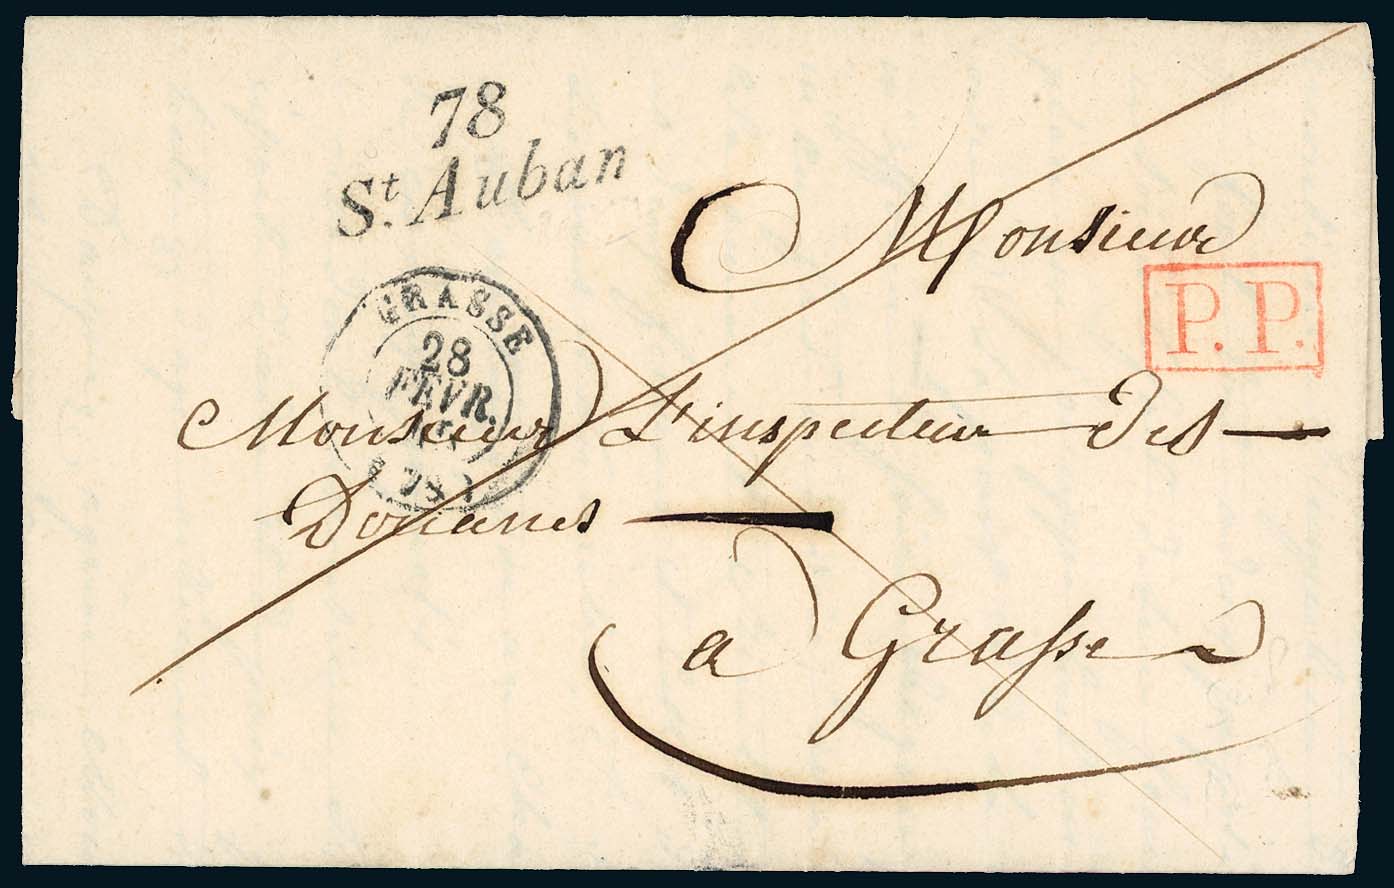 78
St. Auban
Monsieur
P.P.
GRASSE
28
FEVR.
Monsieur L'inspecteur des
Douanes
a Grasse